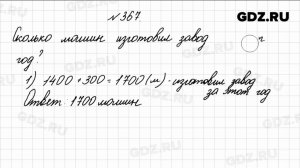 GDZ.RU
№ 367
Сколько машин изготовил завод
год?
1) 1400 + 300 = 1700 (м) - изготовил завод
за этот год
Ответ 1700 машин
GDZ.RU